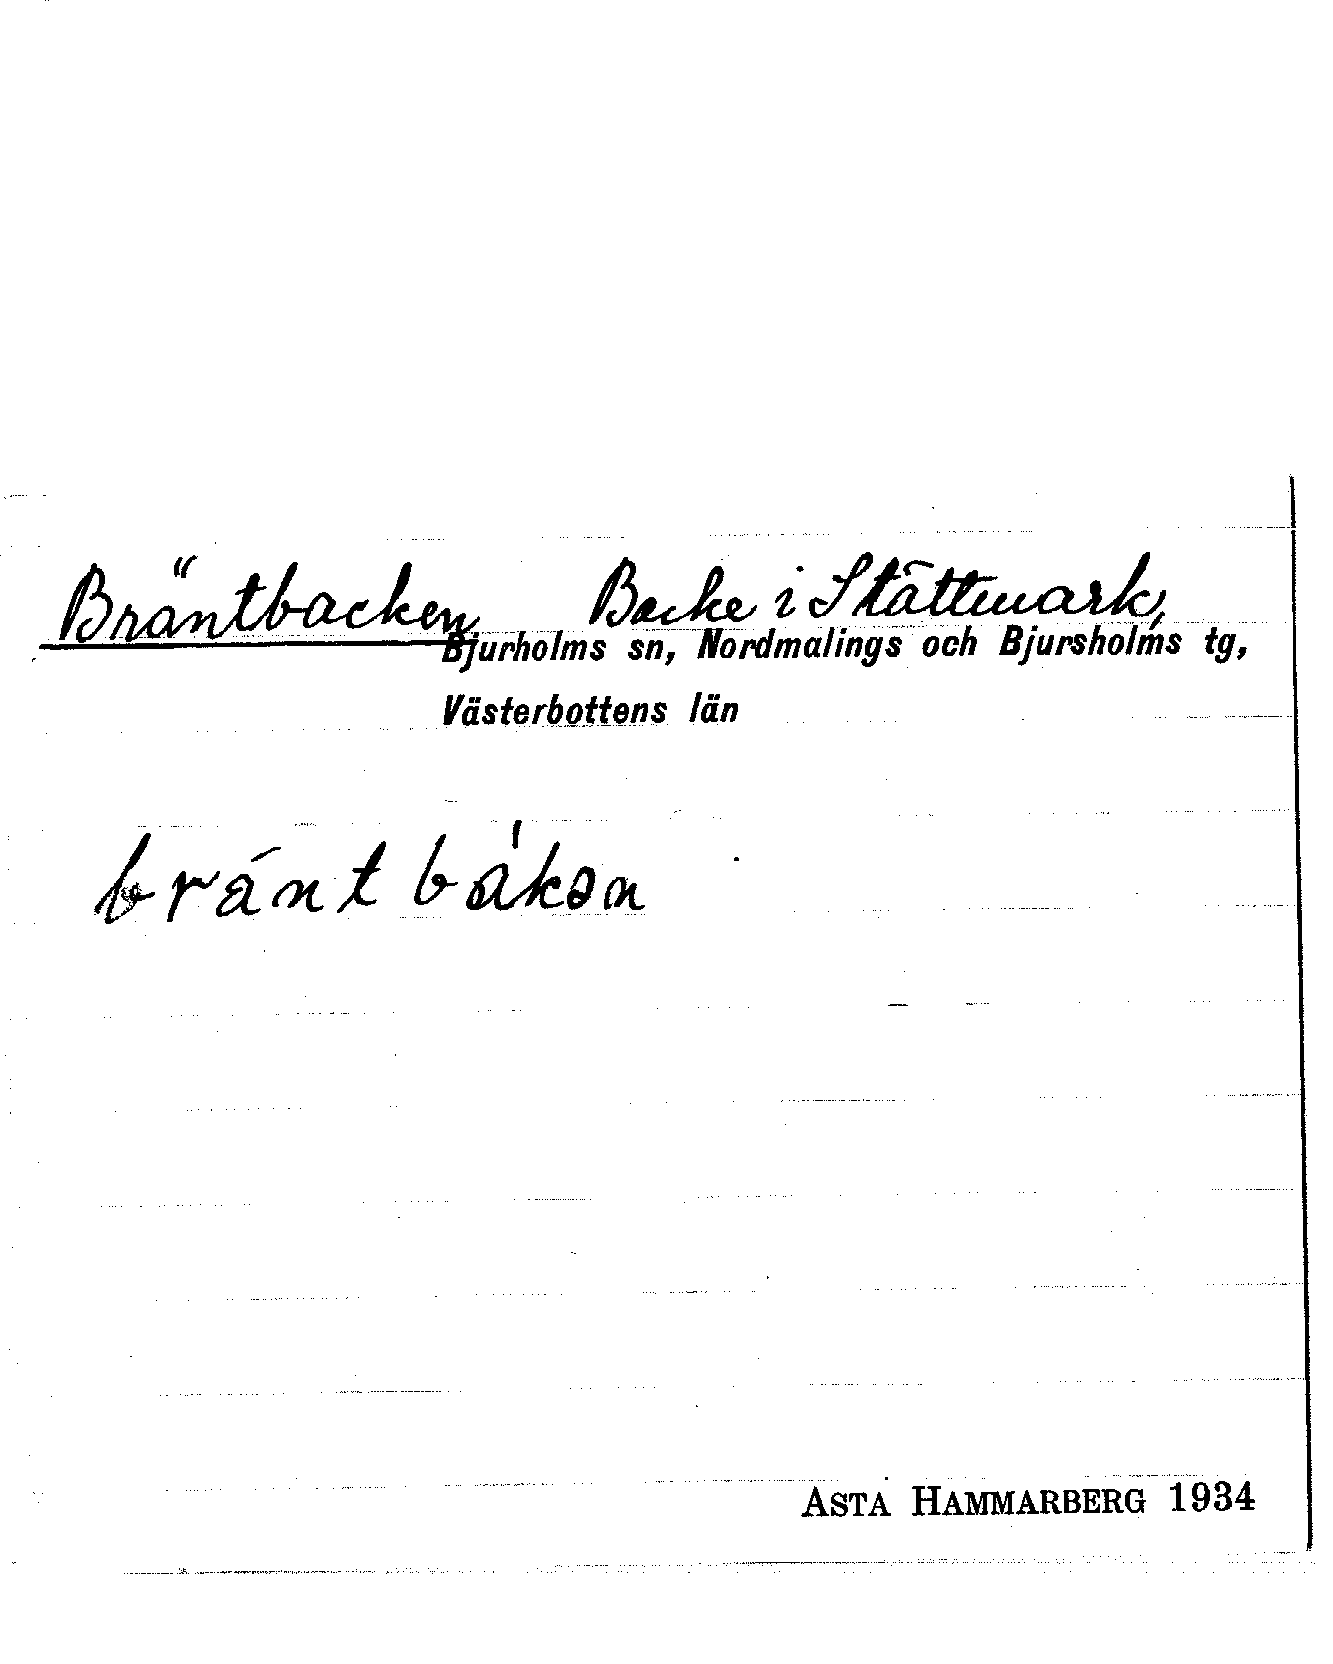 Bräntbacken Backe i Stättmark,
Bjurholms sn, Nordmalings och Bjursholms tg,
Västerbottens län
bránt bákən
ASTA HAMMARBERG 1934